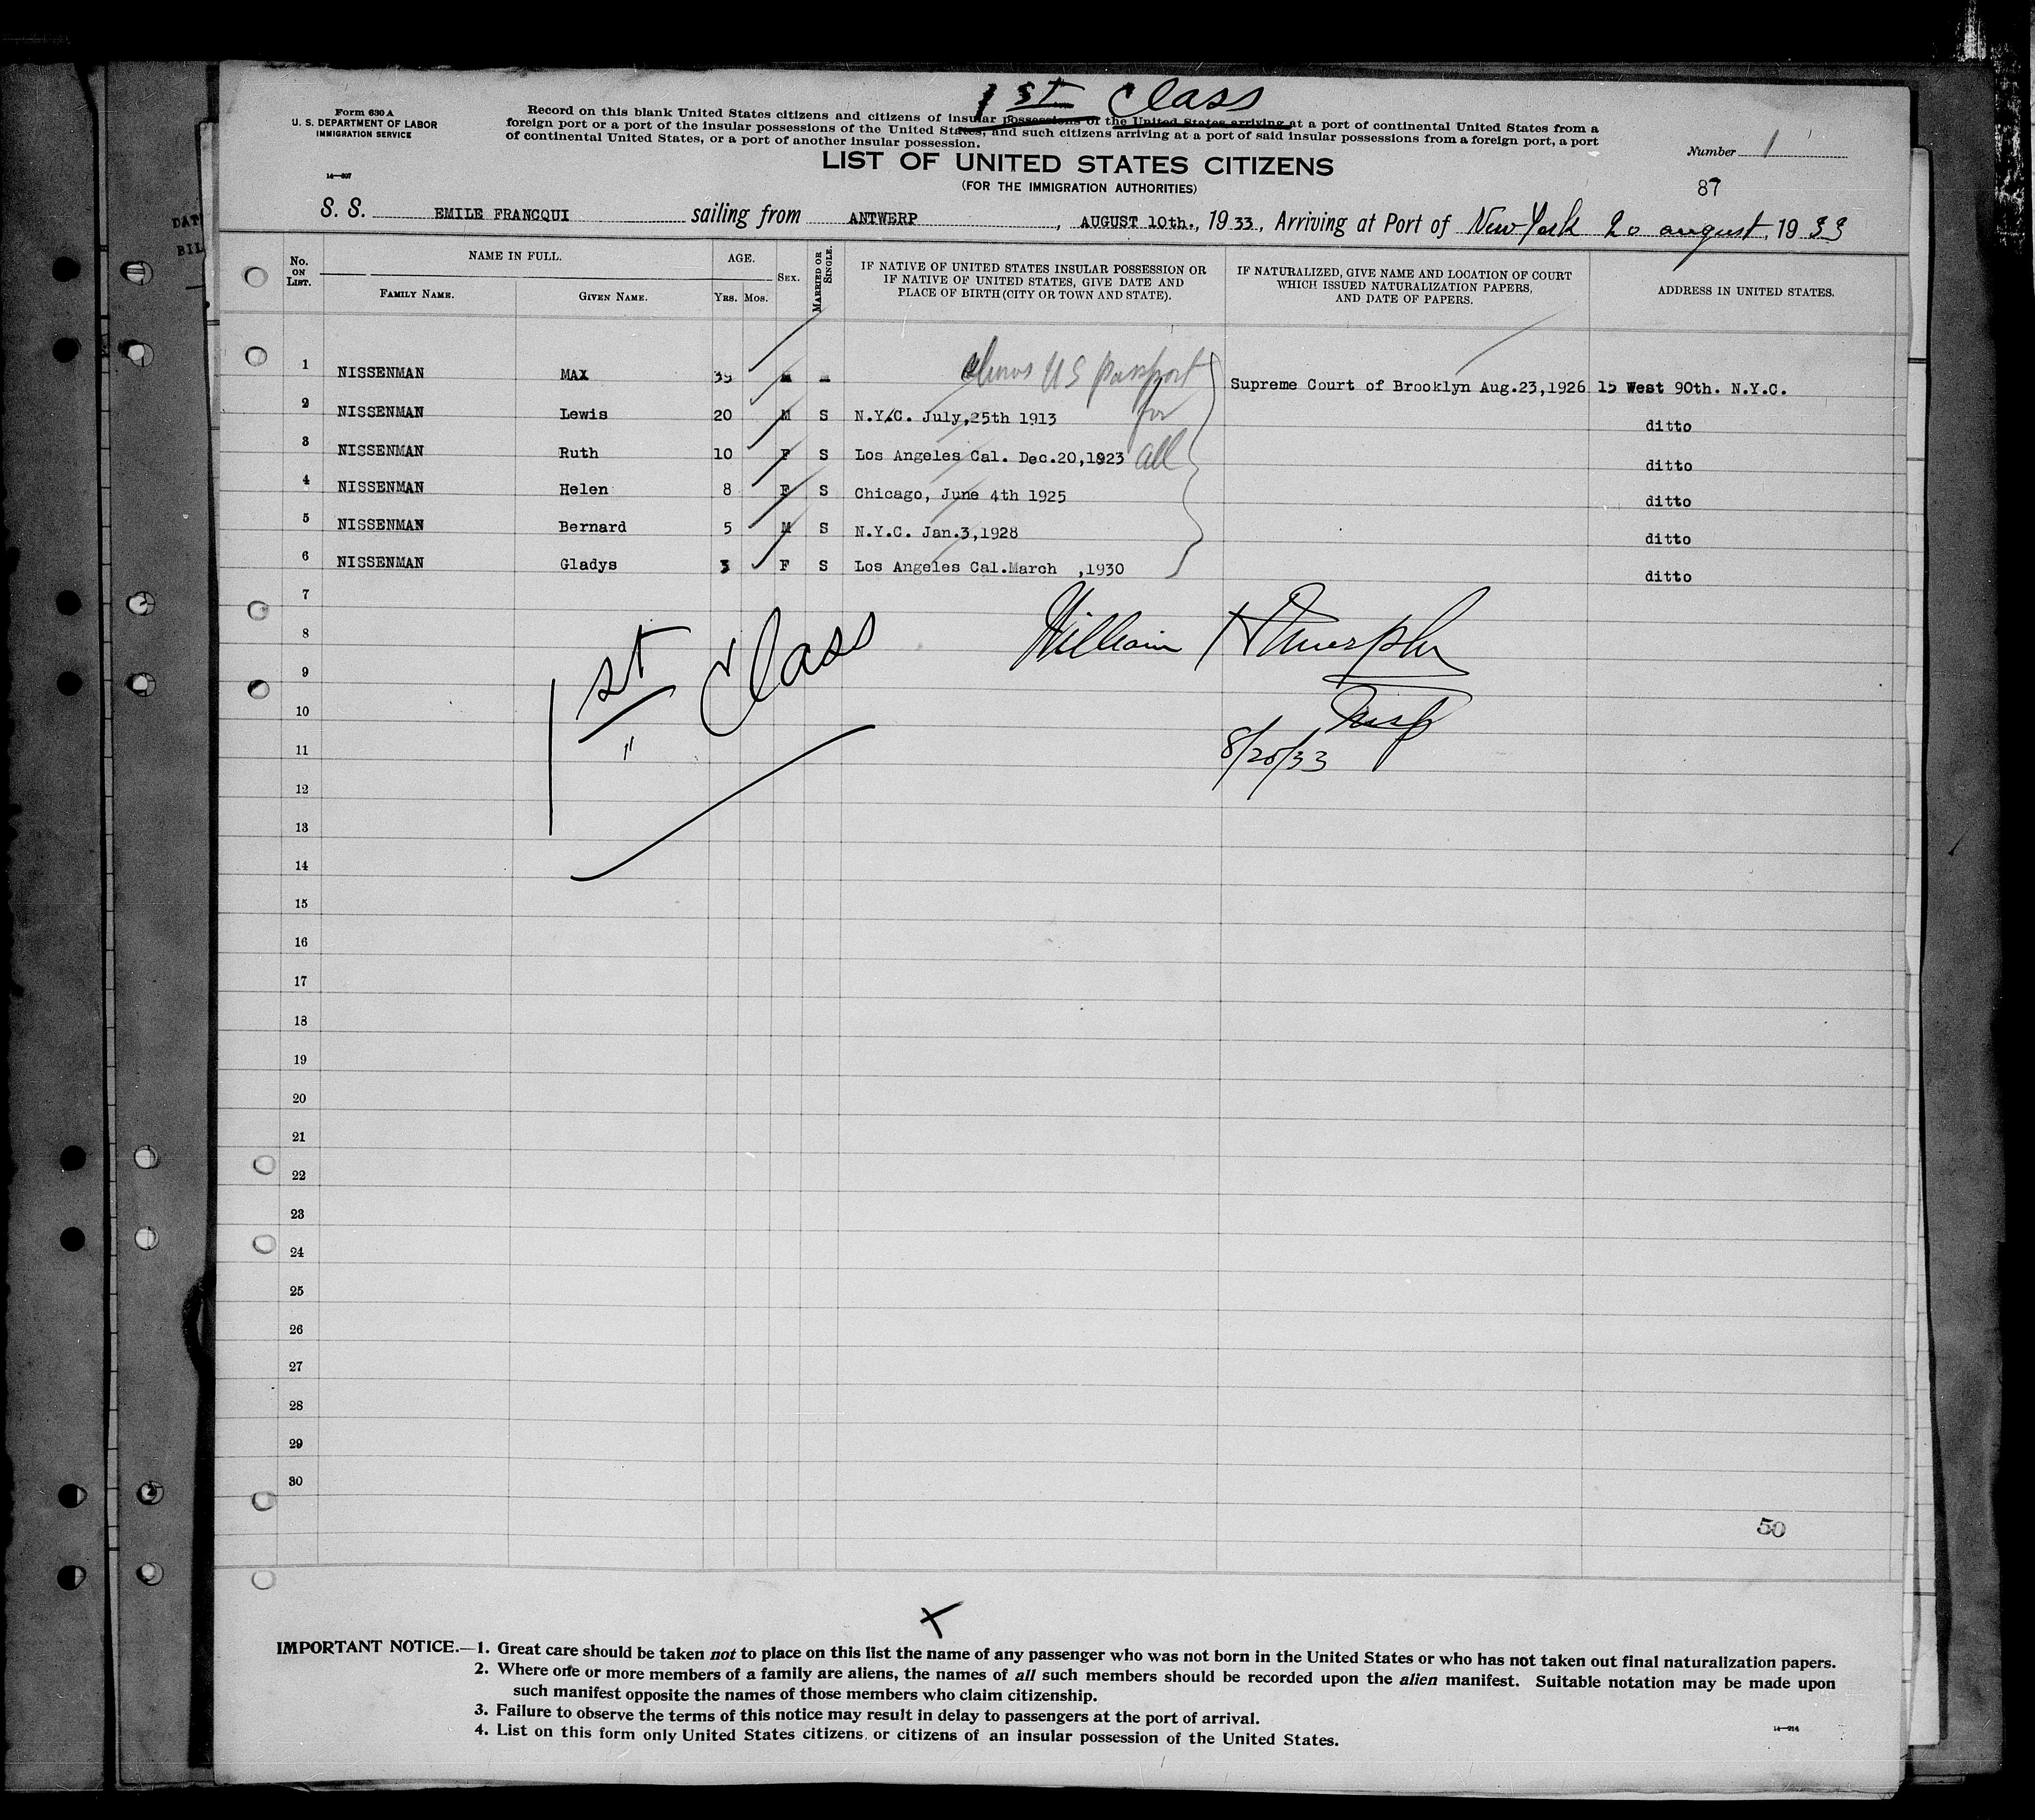 1st Class
Form 630 A
U. S. DEPARTMENT OF LABOR
IMMIGRATION SERVICE
Record on this blank United States citizens and citizens of insular possessions of the United States arriving at a port of continental United States from a
foreign port or a port of the insular possessions of the United States, and such citizens arriving at a port of said insular possessions from a foreign port, a port
of continental United States, or a port of another insular possession.
LIST OF UNITED STATES CITIZENS
(FOR THE IMMIGRATION AUTHORITIES)
Number 1
87
S. S. EMILE FRANCQUI sailing from ANTWERP, AUGUST 10th., 1933, Arriving at Port of New York 20 august, 1933
DAT
BIL
No. ON LIST. NAME IN FULL. FAMILY NAME. GIVEN NAME. AGE. YRS. MOS. SEX. MARRIED OR SINGLE. IF NATIVE OF UNITED STATES INSULAR POSSESSION OR IF NATIVE OF UNITED STATES, GIVE DATE AND PLACE OF BIRTH (CITY OR TOWN AND STATE). IF NATURALIZED, GIVE NAME AND LOCATION OF COURT WHICH ISSUED NATURALIZATION PAPERS, AND DATE OF PAPERS. ADDRESS IN UNITED STATES.
1 NISSENMAN MAX 39 M M Shows US Passport Supreme Court of Brooklyn Aug.23,1926 15 West 90th. N.Y.C.
2 NISSENMAN Lewis 20 M S N.Y.C. July,25th 1913 for ditto
3 NISSENMAN Ruth 10 F S Los Angeles Cal. Dec.20,1923 all ditto
4 NISSENMAN Helen 8 F S Chicago, June 4th 1925 ditto
5 NISSENMAN Bernard 5 M S N.Y.C. Jan.3,1928 ditto
6 NISSENMAN Gladys 3 F S Los Angeles Cal.March ,1930 ditto
7
8
1st Class William H Murphy
9
10
Insp
11
8/20/33
12
13
14
15
16
17
18
19
20
21
22
23
24
25
26
27
28
29
30
50
X
IMPORTANT NOTICE.—1. Great care should be taken not to place on this list the name of any passenger who was not born in the United States or who has not taken out final naturalization papers.
2. Where one or more members of a family are aliens, the names of all such members should be recorded upon the alien manifest. Suitable notation may be made upon
such manifest opposite the names of those members who claim citizenship.
3. Failure to observe the terms of this notice may result in delay to passengers at the port of arrival.
4. List on this form only United States citizens or citizens of an insular possession of the United States.
14—214